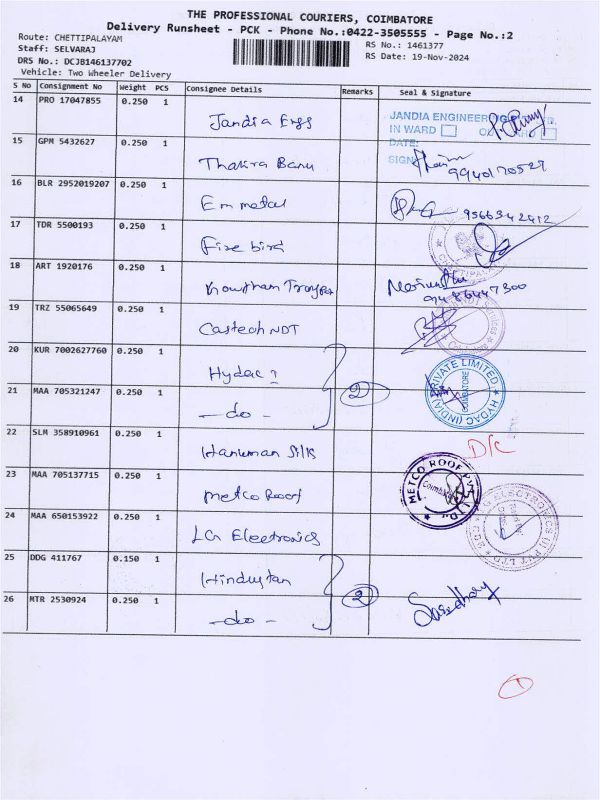 THE PROFESSIONAL COURIERS, COIMBATORE
Delivery Runsheet - PCK - Phone No.:0422-3505555 - Page No.:2
Route: CHETTIPALAYAM
Staff: SELVARAJ
RS No.: 1461377
DRS No.: DCJB146137702
RS Date: 19-Nov-2024
Vehicle: Two Wheeler Delivery
S No Consignment No Weight PCS Consignee Details Remarks Seal & Signature
14 PRO 17047855 0.250 1 Jandia Eggs
JANDIA ENGINEERING
IN WARD
DATE:
SIGN
15 GPM 5432627 0.250 1 Thakira Banu 9940170527
16 BLR 2952019207 0.250 1 Em metal 9566342412
17 TDR 5500193 0.250 1 Fire bird
18 ART 1920176 0.250 1 9486447300
19 TRZ 55065649 0.250 1 Castech NDT
20 KUR 7002627760 0.250 1 Hydac 2
PRIVATE LIMITED ★ HYDAC (INDIA) COIMBATORE
21 MAA 705321247 0.250 1 - do -
22 SLM 358910961 0.250 1 Hanuman Silks D/C
23 MAA 705137715 0.250 1 Metco Roof
METCO ROOF PVT LTD
24 MAA 650153922 0.250 1 LG Electronics
25 DDG 411767 0.150 1 Hindustan 2
26 MTR 2530924 0.250 1 - do -
1